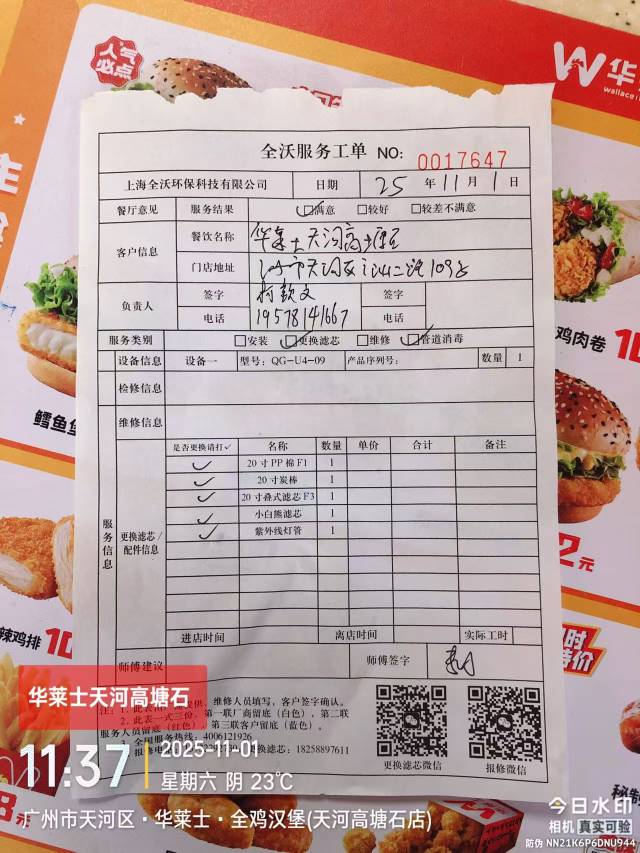 人气
必点
华
wallace
全沃服务工单 NO: 0017647
上海全沃环保科技有限公司 日期 25 年 11 月 1 日
餐厅意见 服务结果 满意 较好 较差不满意
客户信息 餐饮名称 华莱士天河高塘石
门店地址 天河区 二路109号
负责人 签字 签字
电话 19578141667 电话
服务类别 安装 更换滤芯 维修 管道消毒
设备信息 设备一 型号: QG-U4-09 产品序列号: 数量 1
检修信息
维修信息
服务信息
更换滤芯/配件信息
是否更换请打✓ 名称 数量 单价 合计 备注
✓ 20寸PP棉F1 1
✓ 20寸炭棒 1
✓ 20寸叠式滤芯F3 1
✓ 小白熊滤芯 1
✓ 紫外线灯管 1
进店时间 离店时间 实际工时
师傅建议 师傅签字
维修人员填写,客户签字确认。
2. 此表一式三份,第一联厂商留底(白色),第二联
服务人员留底(红色),第三联客户留底(蓝色)。
全国服务热线: 4006121926
滤芯: 18258897611
更换滤芯微信 报修微信
鸡肉卷
鳕鱼堡
2元
辣鸡排 10
特价
秘制
8元
华莱士天河高塘石
11:37
2025-11-01
星期六 阴 23℃
广州市天河区·华莱士·全鸡汉堡(天河高塘石店)
今日水印
相机 真实可验
防伪 NN21K6P6DNU944